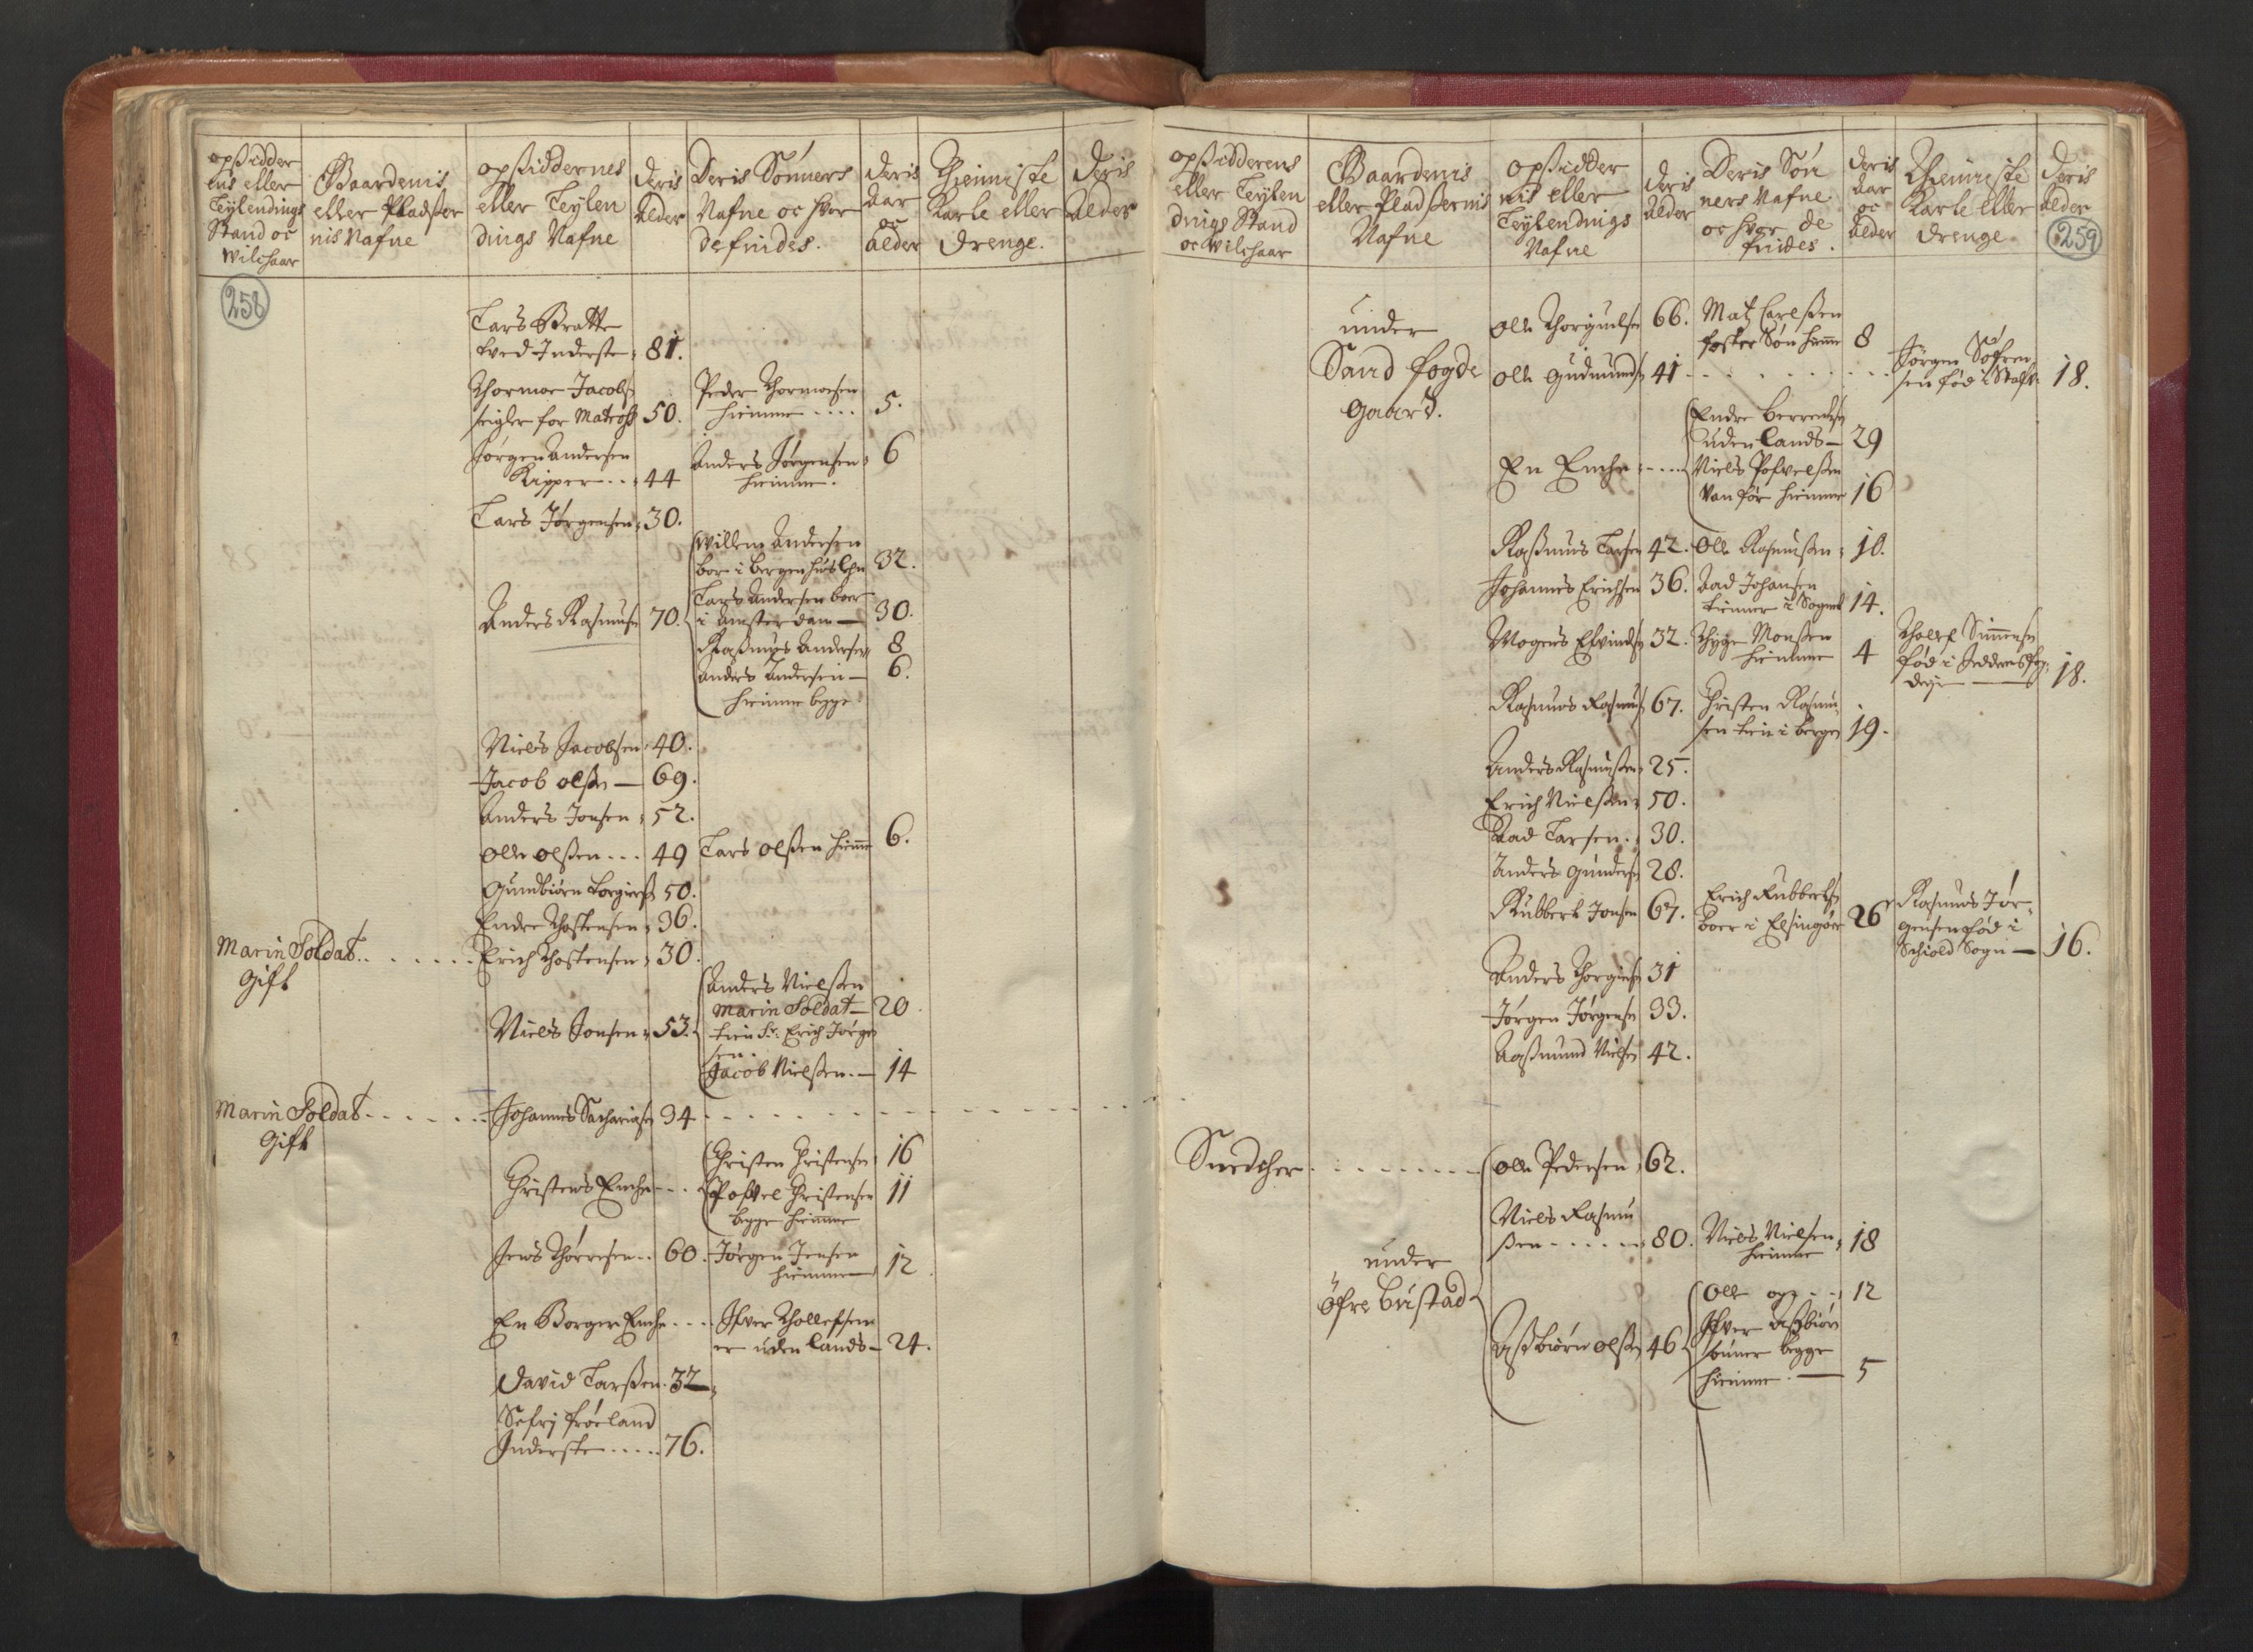 opßidder
ens eller
Leylendings
Stand oc
Wilchaar
Gaardenis
eller Pladßer
nis Nafne
opßiddernes
eller Leylen
dings Nafne
deris
Alder
Deris Sønners
Nafne oc hvor
de findes.
deris
Aar
oc
Alder
Thienniste
Karle eller
drenge.
deris
Alder
258
Lars Bratte
tved Inderste 81.
Thormoe Jacobs
seigler for Matroß 50.
Peder Thormoesen
hiemme .... 5.
Jørgen Andersen
Kipper .. 44
Anders Jørgensen 6
hiemme.
Lars Jørgensen 30.
Anders Rasmus 70.
Willem Andersen
bor i Bergenhus Lehn 32.
Lars Andersen boer
i Amsterdam — 30.
Raßmus Andersen 8
Anders Andersen — 6.
hiemme begge
Niels Jacobsen 40.
Jacob olßen — 69.
Anders Jonsen 52.
olle olßen ... 49
Lars olßen hiemme 6.
Gundbiørn Torgierß 50.
Endre Thostensen 36.
Marin Soldat......
Gift
Erich Thostensen 30.
Niels Jonsen 53.
Anders Nielßen
Marin Soldat — 20
tien Sr. Erich Jørgen
sen.
Jacob Nielßen. — 14
Marin Soldat......
Gift
Johannes Sachariasen 34
Christens Enche ...
Christen Christensen 16
Pofvel Christensen 11
begge hiemme
Jens Thorresen .. 60.
Jørgen Jensen
hiemme 12
En Borger Enche ....
Ifver Thollefsen
er uden lands — 24.
David Larßen. 32
Sefrj frøeland
Inderste ..... 76.
opßidderens
eller Leylen
dings Stand
oc Wilchaar
Gaardenis
eller Pladßernis
Nafne
opßidder
nis eller
Leylendings
Nafne
deris
Alder
Deris Søn
ners Nafne
oc hvor de
findes.
deris
Aar
oc
Alder
Thienniste
Karle eller
drenge
deris
Alder
259
under
Sand fogde
Gaard.
olle Thorgiuelsen 66.
Matz Carlßen
foster Søn hiemme 8
olle Gudmunds 41
Jørgen Søfren
sen fød i Staf. 18.
En Enche ....
Endre Berrentsen
uden lands — 29
Niels Pofvelßen
Van før hiemme 16
Raßmus Larsen 42.
olle Rasmusßen 10.
Johannes Erichsen 36.
Aad Johansen
tienner i Sognet 14.
Mogens Elvindsen 32.
Thyge Monßen
hiemme 4
Tholef Simmensen
fød i Jedderens fog
derj — 18.
Rasmus Rasmus 67.
Christen Rasmu
sen tien i bergen 19.
Anders Rasmusßen 25.
Erich Nielßen 50.
Aad Larsen . 30.
Anders Gunders 28.
Rubbert Jonsen 67.
Erich Rubbertsen
boer i Elsingør 26
Rasmus Jør
gensen fød i
Schiold Sogn — 16.
Anders Thorgiers 31
Jørgen Jørgensen 33.
Aaßmund Nielsen 42.
Snedcher ........
olle Pedersen 62.
under
Øfre Bristad
Niels Rasmu
ßen ...... 80.
Niels Nielsen
hiemme 18
Aßbiørn olßen 46
olle og .. 12
Ifver Aßbiørn
sønner begge
hiemme. — 5